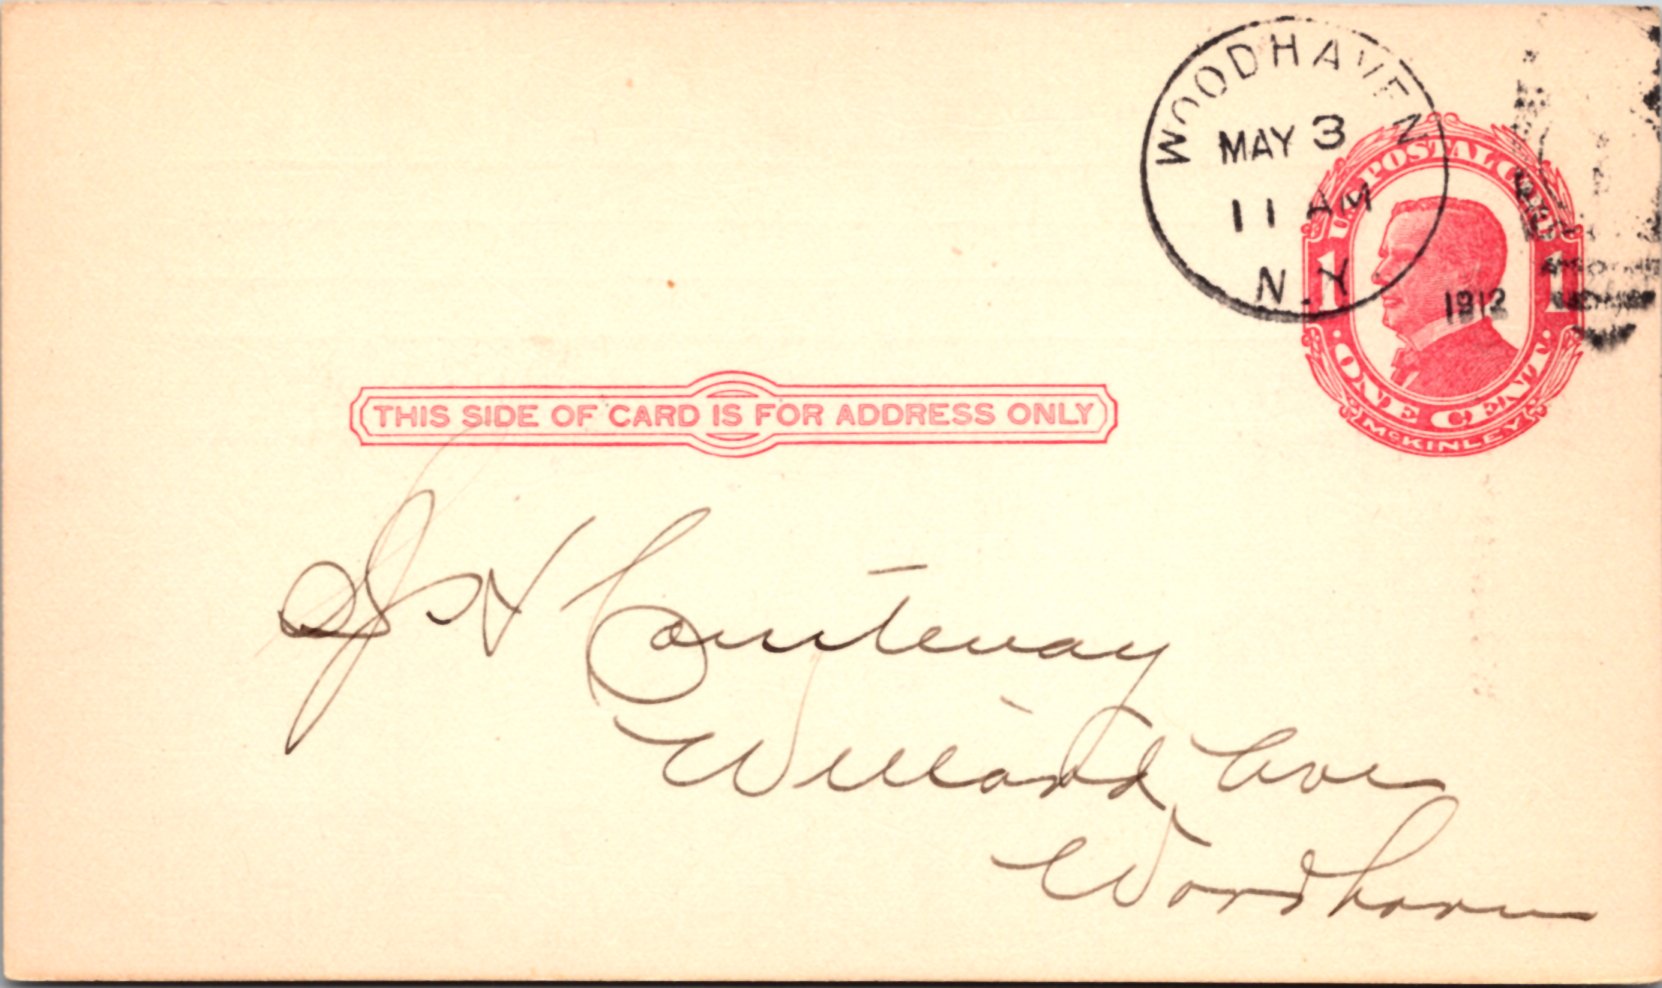 WOODHAVEN
MAY 3
11 AM
N.Y.
1912
U.S. POSTAL CARD
1 1
· ONE CENT ·
McKINLEY
THIS SIDE OF CARD IS FOR ADDRESS ONLY
Courtenay
Willard Ave
Woodhaven